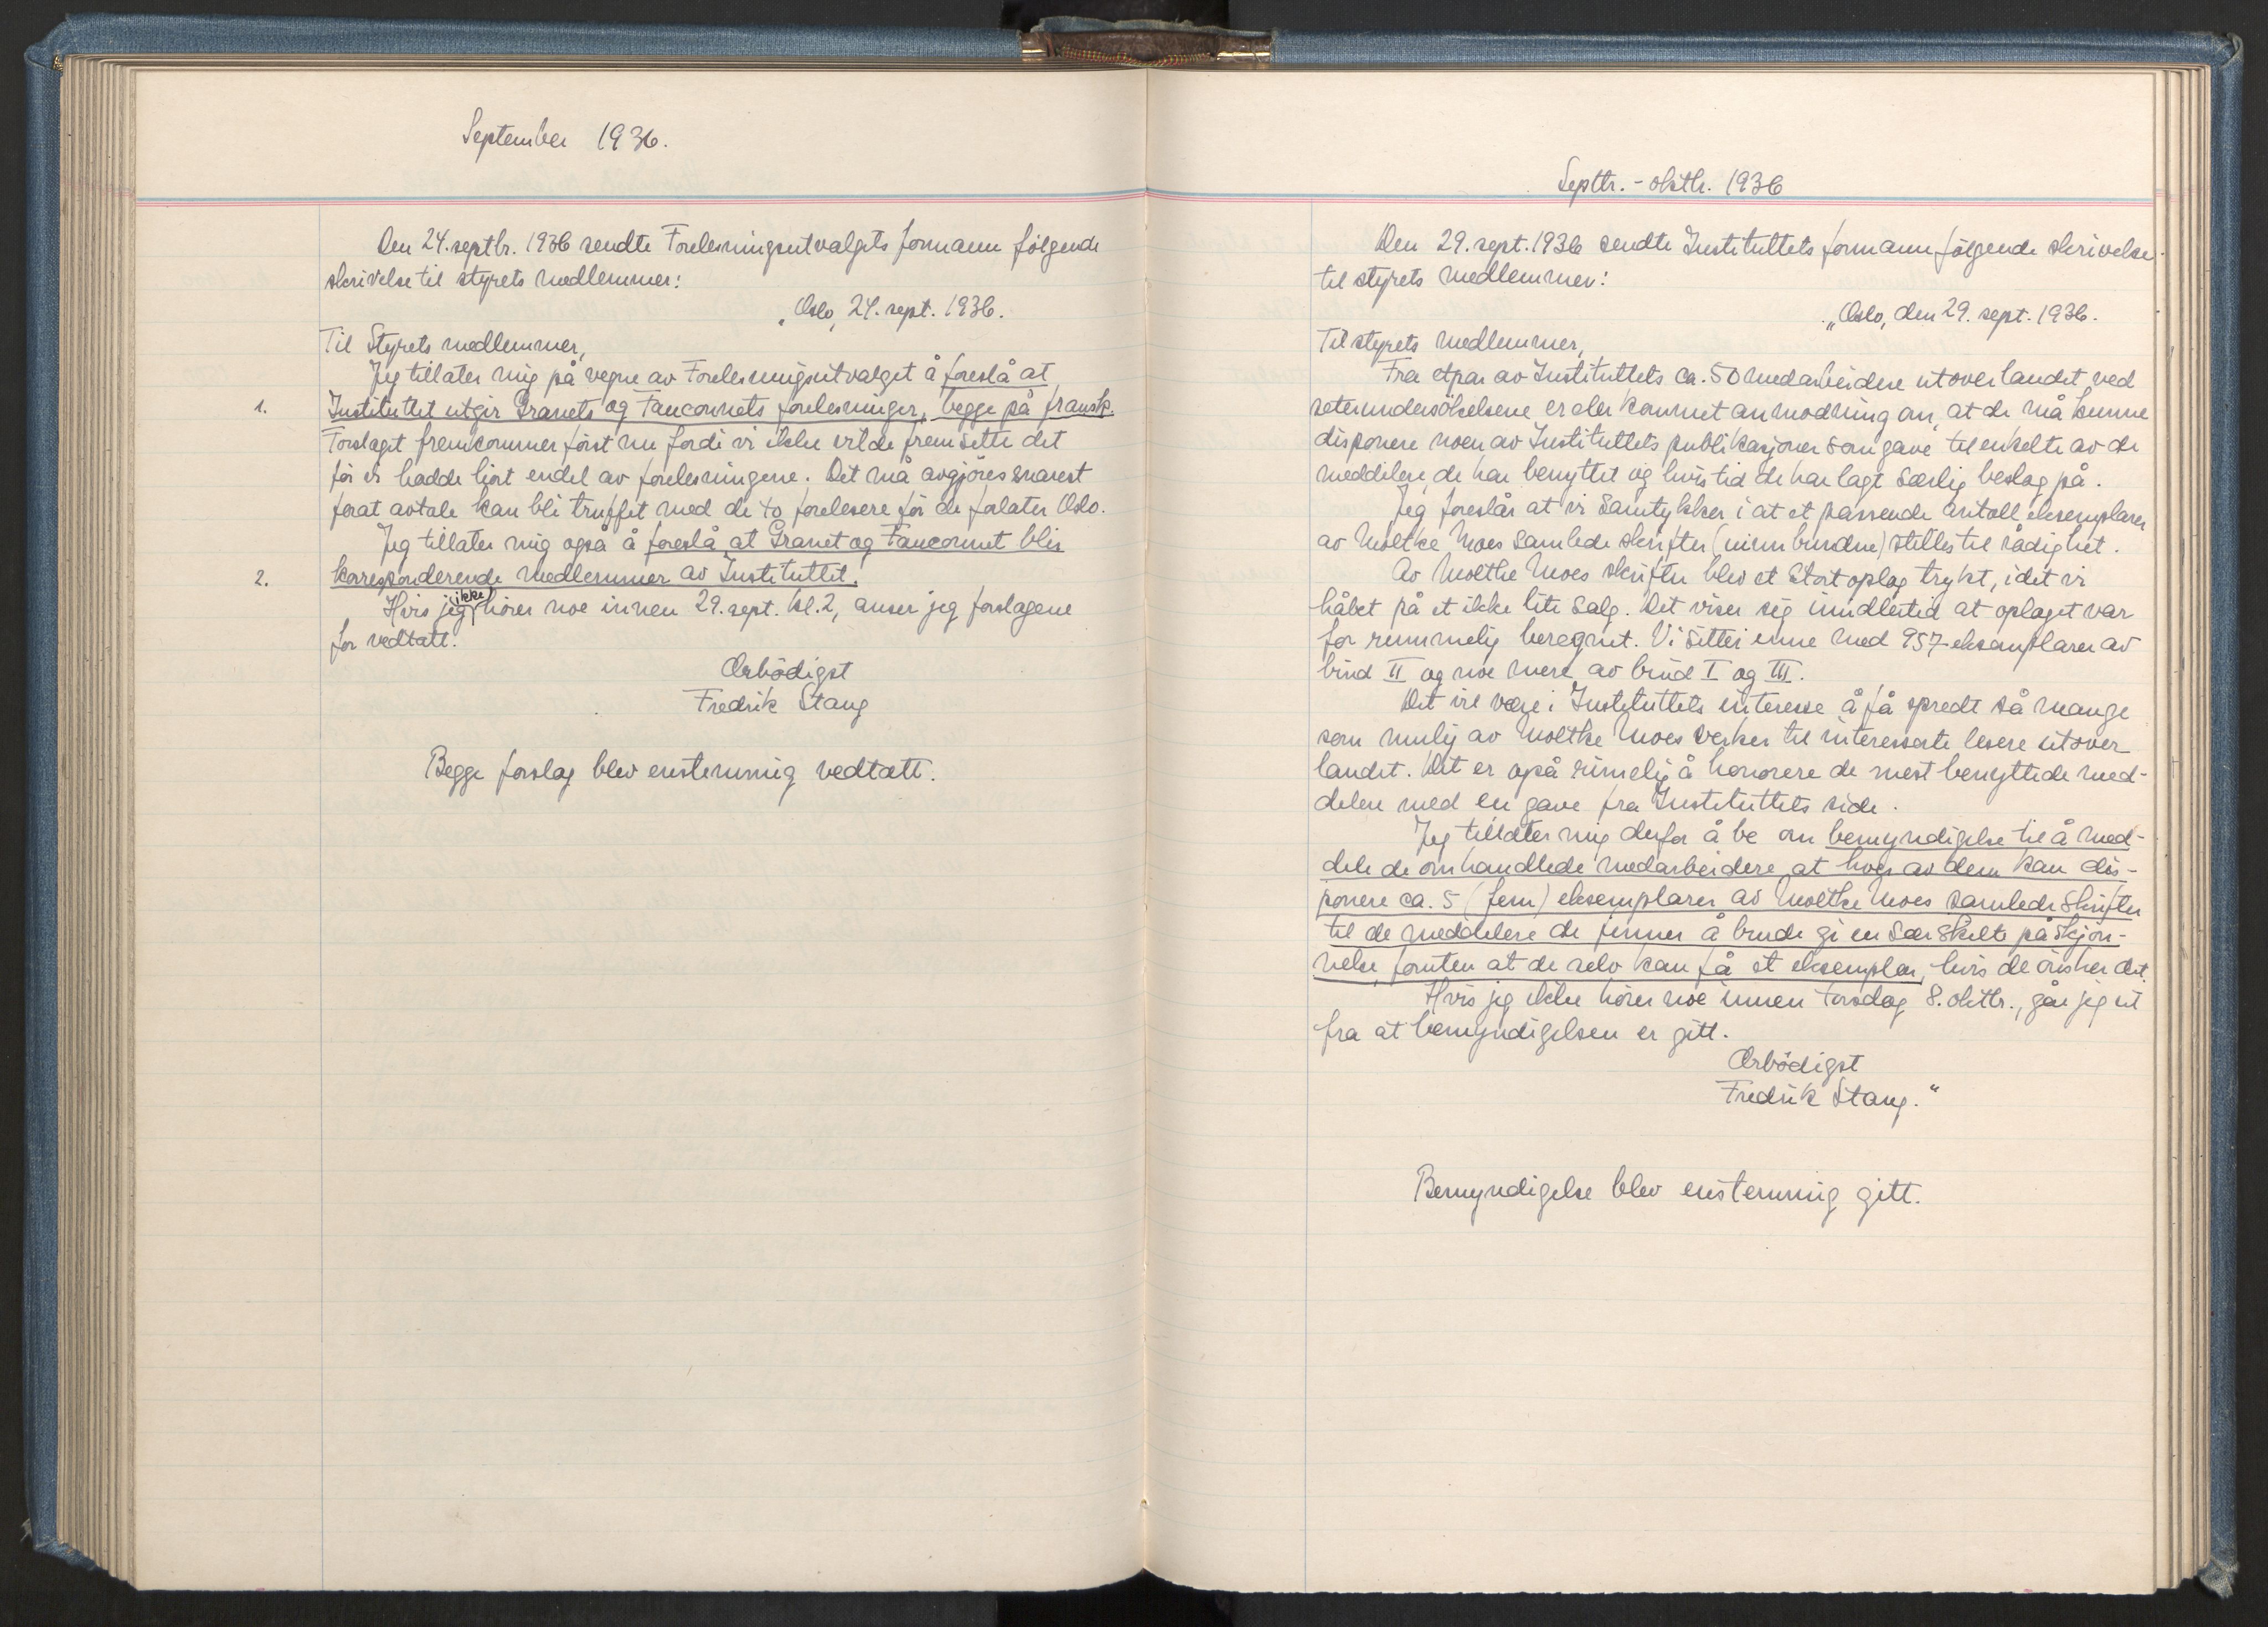 September 1936.
Den 24. septbr. 1936 sendte Forelesningsutvalgets formann følgende
skrivelse til styrets medlemmer:
„Oslo, 24. sept. 1936.
Til Styrets medlemmer,
Jeg tillater mig på vegne av Forelesningsutvalget å foreslå at
1. Instituttet utgir Granets og Fauconnets forelesninger, begge på fransk.
Forslaget fremkommer først nu fordi vi ikke vilde fremsette det
før vi hadde hørt endel av forelesningene. Det må avgjøres snarest
forat avtale kan bli truffet med de to forelesere før de forlater Oslo.
Jeg tillater mig også å foreslå at Granet og Fauconnet blir
2. korresponderende medlemmer av Instituttet.
Hvis jeg ikke hører noe innen 29. sept. kl. 2, anser jeg forslagene
for vedtatt.
Ærbødigst
Fredrik Stang
Begge forslag blev enstemmig vedtatt.
Septbr. - oktbr. 1936
Den 29. sept. 1936 sendte Instituttets formann følgende skrivelse
til styrets medlemmer:
„Oslo, den 29. sept. 1936.
Til styrets medlemmer,
Fra etpar av Instituttets ca. 50 medarbeidere utover landet ved
seterundersökelsene er der kommet anmodning om, at de må kunne
disponere noen av Instituttets publikasjoner som gave til enkelte av de
meddelere, de har benyttet og hvis tid de har lagt særlig beslag på.
Jeg foreslår at vi samtykker i at et passende antall eksemplarer
av Moltke Moes samlede skrifter (uinnbundne) stilles til rådighet.
Av Moltke Moes skrifter blev et stort oplag trykt, idet vi
håbet på et ikke lite salg. Det viser sig imidlertid at oplaget var
for rummelig beregnet. Vi sitter inne med 957 eksemplarer av
bind II og noe mere av bind I og III.
Det vil være i Instituttets interesse å få spredt så mange
som mulig av Moltke Moes verker til interesserte lesere utover
landet. Det er også rimelig å honorere de mest benyttede med-
delere med en gave fra Instituttets side.
Jeg tillater mig derfor å be om bemyndigelse til å med-
dele de omhandlede medarbeidere at hver av dem kan dis-
ponere ca. 5 (fem) eksemplarer av Moltke Moes samlede skrifter
til de meddelere de finner å burde gi en særskilt påskjøn-
nelse, foruten at de selv kan få et eksemplar, hvis de ønsker det.
Hvis jeg ikke hører noe innen torsdag 8. oktbr., går jeg ut
fra at bemyndigelsen er gitt.
Ærbødigst
Fredrik Stang.“
Bemyndigelse blev enstemmig gitt.